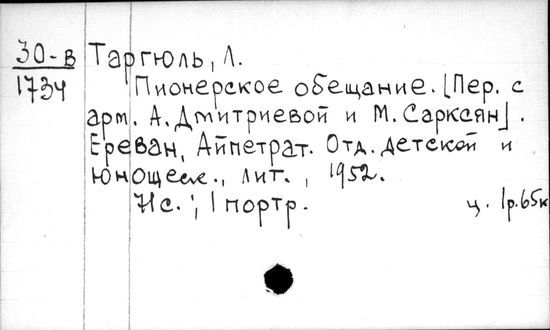 30-в Таргюль, Л.
1734 Пионерское обещание. [Пер. с
арм. А. Дмитриевой и М. Сарксян].
Ереван, Айпетрат. Отд. детской и
юношеск., лит., 1952.
с.; 1 портр. ц. 1р.65к